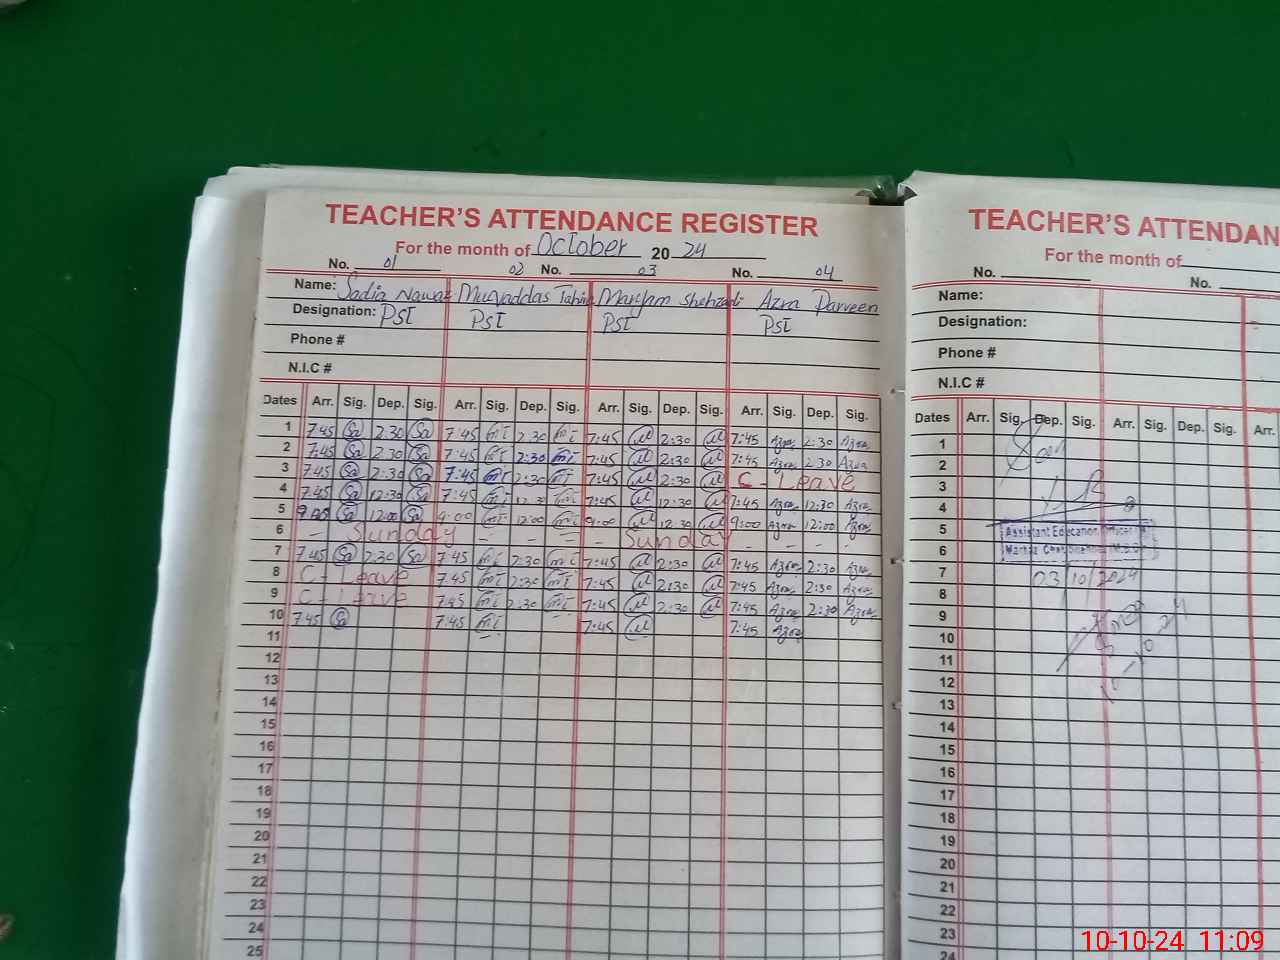 TEACHER'S ATTENDANCE REGISTER
For the month of October 20 24
No. 01 02 No. 03 No. 04
Name: Sadia Nawaz Muqaddas Tahir Maryam Shehzadi Azra Parveen
Designation: PST PST PST PST
Phone #
N.I.C #
Dates Arr. Sig. Dep. Sig. Arr. Sig. Dep. Sig. Arr. Sig. Dep. Sig. Arr. Sig. Dep. Sig.
1 7:45 Sa 2:30 Sa 7:45 mt 2:30 mt 7:45 M 2:30 M 7:45 Azra 2:30 Azra
2 7:45 Sa 2:30 Sa 7:45 mt 2:30 mt 7:45 M 2:30 M 7:45 Azra 2:30 Azra
3 7:45 Sa 2:30 Sa 7:45 mt 2:30 mt 7:45 M 2:30 M C - Leave
4 7:45 Sa 12:30 Sa 7:45 mt 12:30 mt 7:45 M 12:30 M 7:45 Azra 12:30 Azra
5 9:00 Sa 12:00 Sa 9:00 mt 12:00 mt 9:00 M 12:30 M 9:00 Azra 12:00 Azra
6 - Sunday - - - - Sunday - - - -
7 7:45 Sa 2:30 Sa 7:45 mt 2:30 mt 7:45 M 2:30 M 7:45 Azra 2:30 Azra
8 C - Leave 7:45 mt 2:30 mt 7:45 M 2:30 M 7:45 Azra 2:30 Azra
9 C - Leave 7:45 mt 2:30 mt 7:45 M 2:30 M 7:45 Azra 2:30 Azra
10 7:45 Sa 7:45 mt 7:45 M 7:45 Azra
11
12
13
14
15
16
17
18
19
20
21
22
23
24
25
TEACHER'S ATTENDAN
For the month of
No. No.
Name:
Designation:
Phone #
N.I.C #
Dates Arr. Sig. Dep. Sig. Arr. Sig. Dep. Sig. Arr.
1
2
3
4
5 Assistant Education Officer
6 Markaz
7 03/10/2024
8
9
10
11
12 10-10-24
13
14
15
16
17
18
19
20
21
22
23
24
10-10-24 11:09